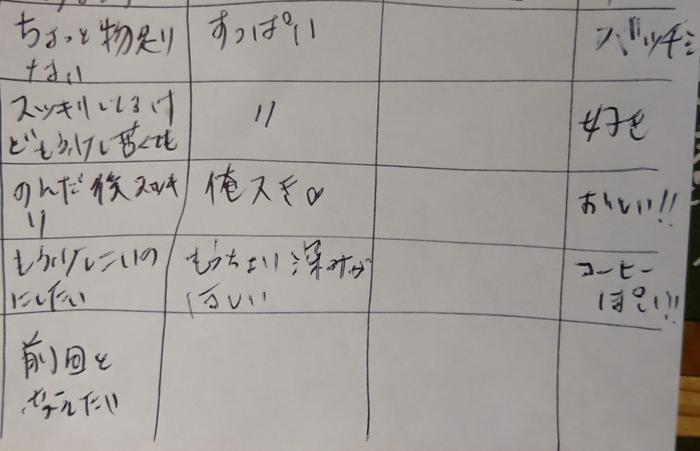 ちょっと物足り
ない
すっぱい
バッチシ
スッキリしてるけ
どもう少し苦くても
〃
好き
のんだ後スッキ
リ
俺スキ♡
おいしい!!
もう少しこいの
にしたい
もうちょい深みが
ほしい
コーヒー
ぽい!!
前回と
たい